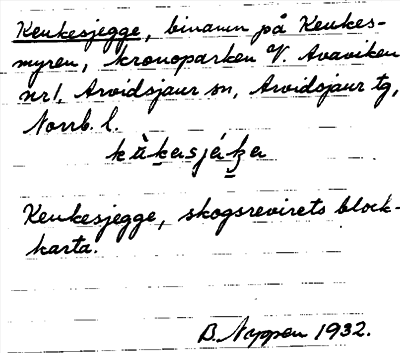 Keukesjegge, binamn på Keukes-
myren, kronoparken V. Avaviken
nr 1, Arvidsjaur sn, Arvidsjaur tg,
Norrb. l.
Keukesjegge, skogsrevirets block-
karta.
B. Nyppen 1932.